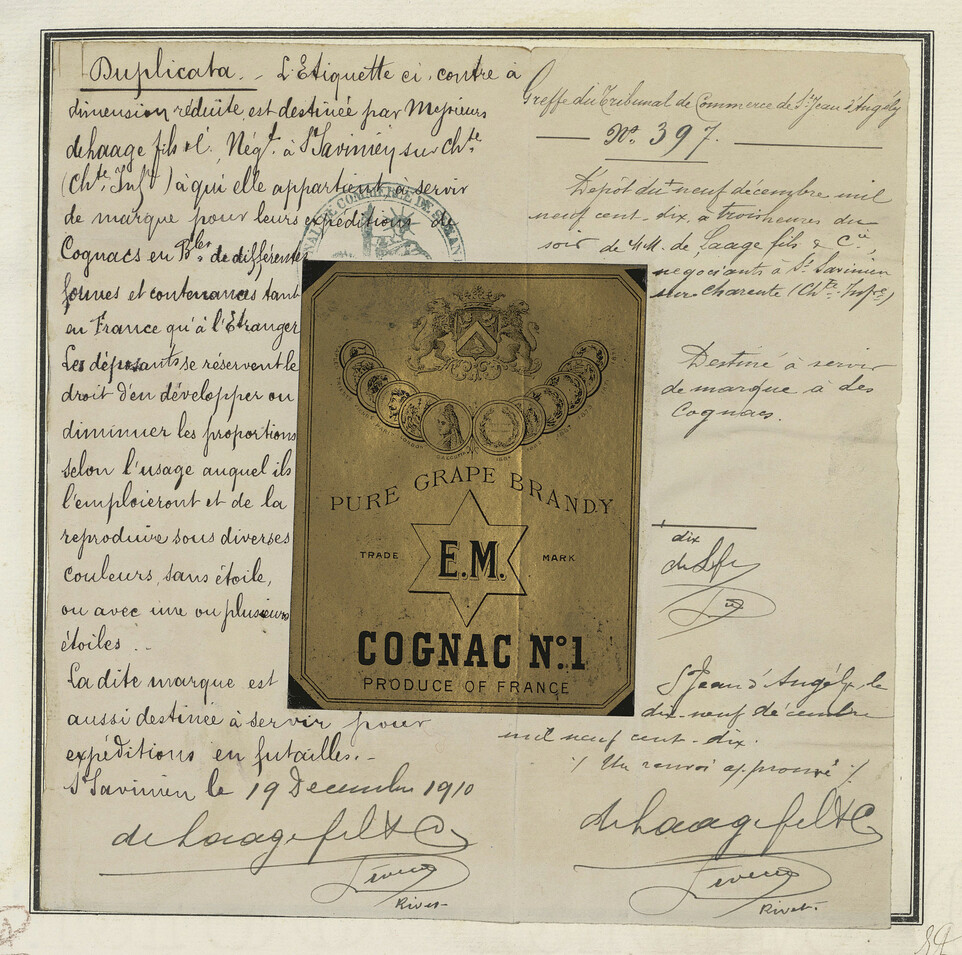 Duplicata. - L'Etiquette ci, contre à
dimension réduite, est destinée par Messieurs
de Laage fils & Cie, Négts. à St Savinien sur Chte.
(Chte. Infre) à qui elle appartient à servir
de marque pour leurs expéditions de
Cognacs en Bles. de différentes
formes et contenances tant
en France qu'à l'Etranger
Les déposants se réservent le
droit d'en développer ou
diminuer les proportions
selon l'usage auquel ils
l'emploieront et de la
reproduire sous diverses
couleurs, sans étoile,
ou avec une ou plusieurs
étoiles. -
La dite marque est
aussi destinée à servir pour
expéditions en futailles. -
St Savinien le 19 Decembre 1910
de Laage fils & Co
Rivet
PURE GRAPE BRANDY
TRADE E.M. MARK
COGNAC No. 1
PRODUCE OF FRANCE
Greffe du Tribunal de Commerce de St. Jean d'Angély
No. 397.
Dépôt du neuf décembre mil
neuf cent-dix, à trois heures du
soir de MM. de Laage fils & Cie,
négociants à St. Savinien
sur Charente (Chte. Infre)
Destiné à servir
de marque à des
Cognacs.
dix
St Jean d'Angély, le
dix-neuf décembre
mil neuf cent-dix.
./ Un renvoi approuvé ./.
de Laage fils & Co
Rivet.